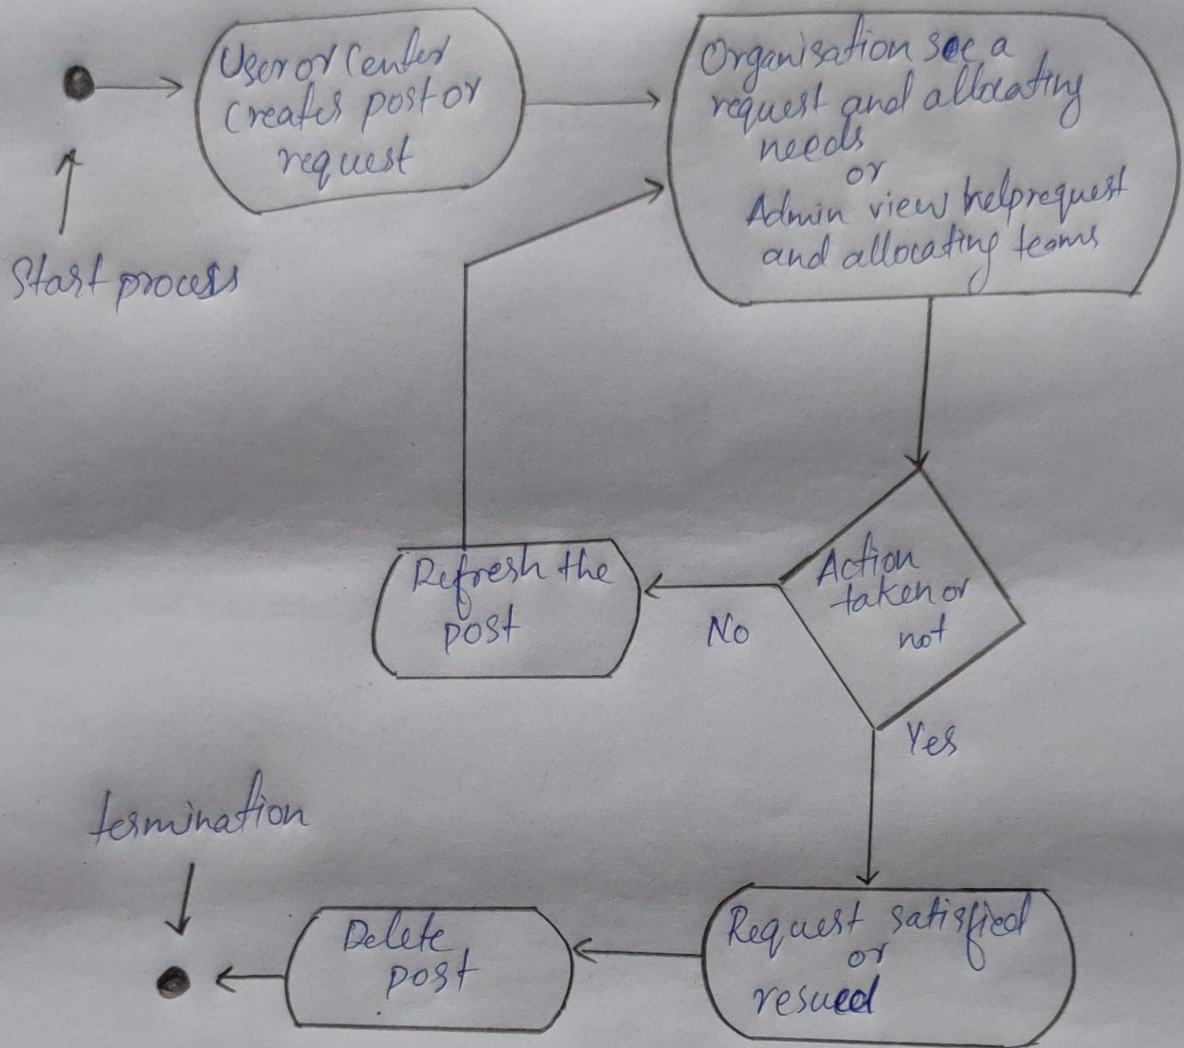 User or Center
Creates post or
request
Start process
Organisation see a
request and allocating
needs
or
Admin view help request
and allocating teams
Action
taken or
not
No
Refresh the
post
Yes
Request satisfied
or
resued
Delete
post
termination